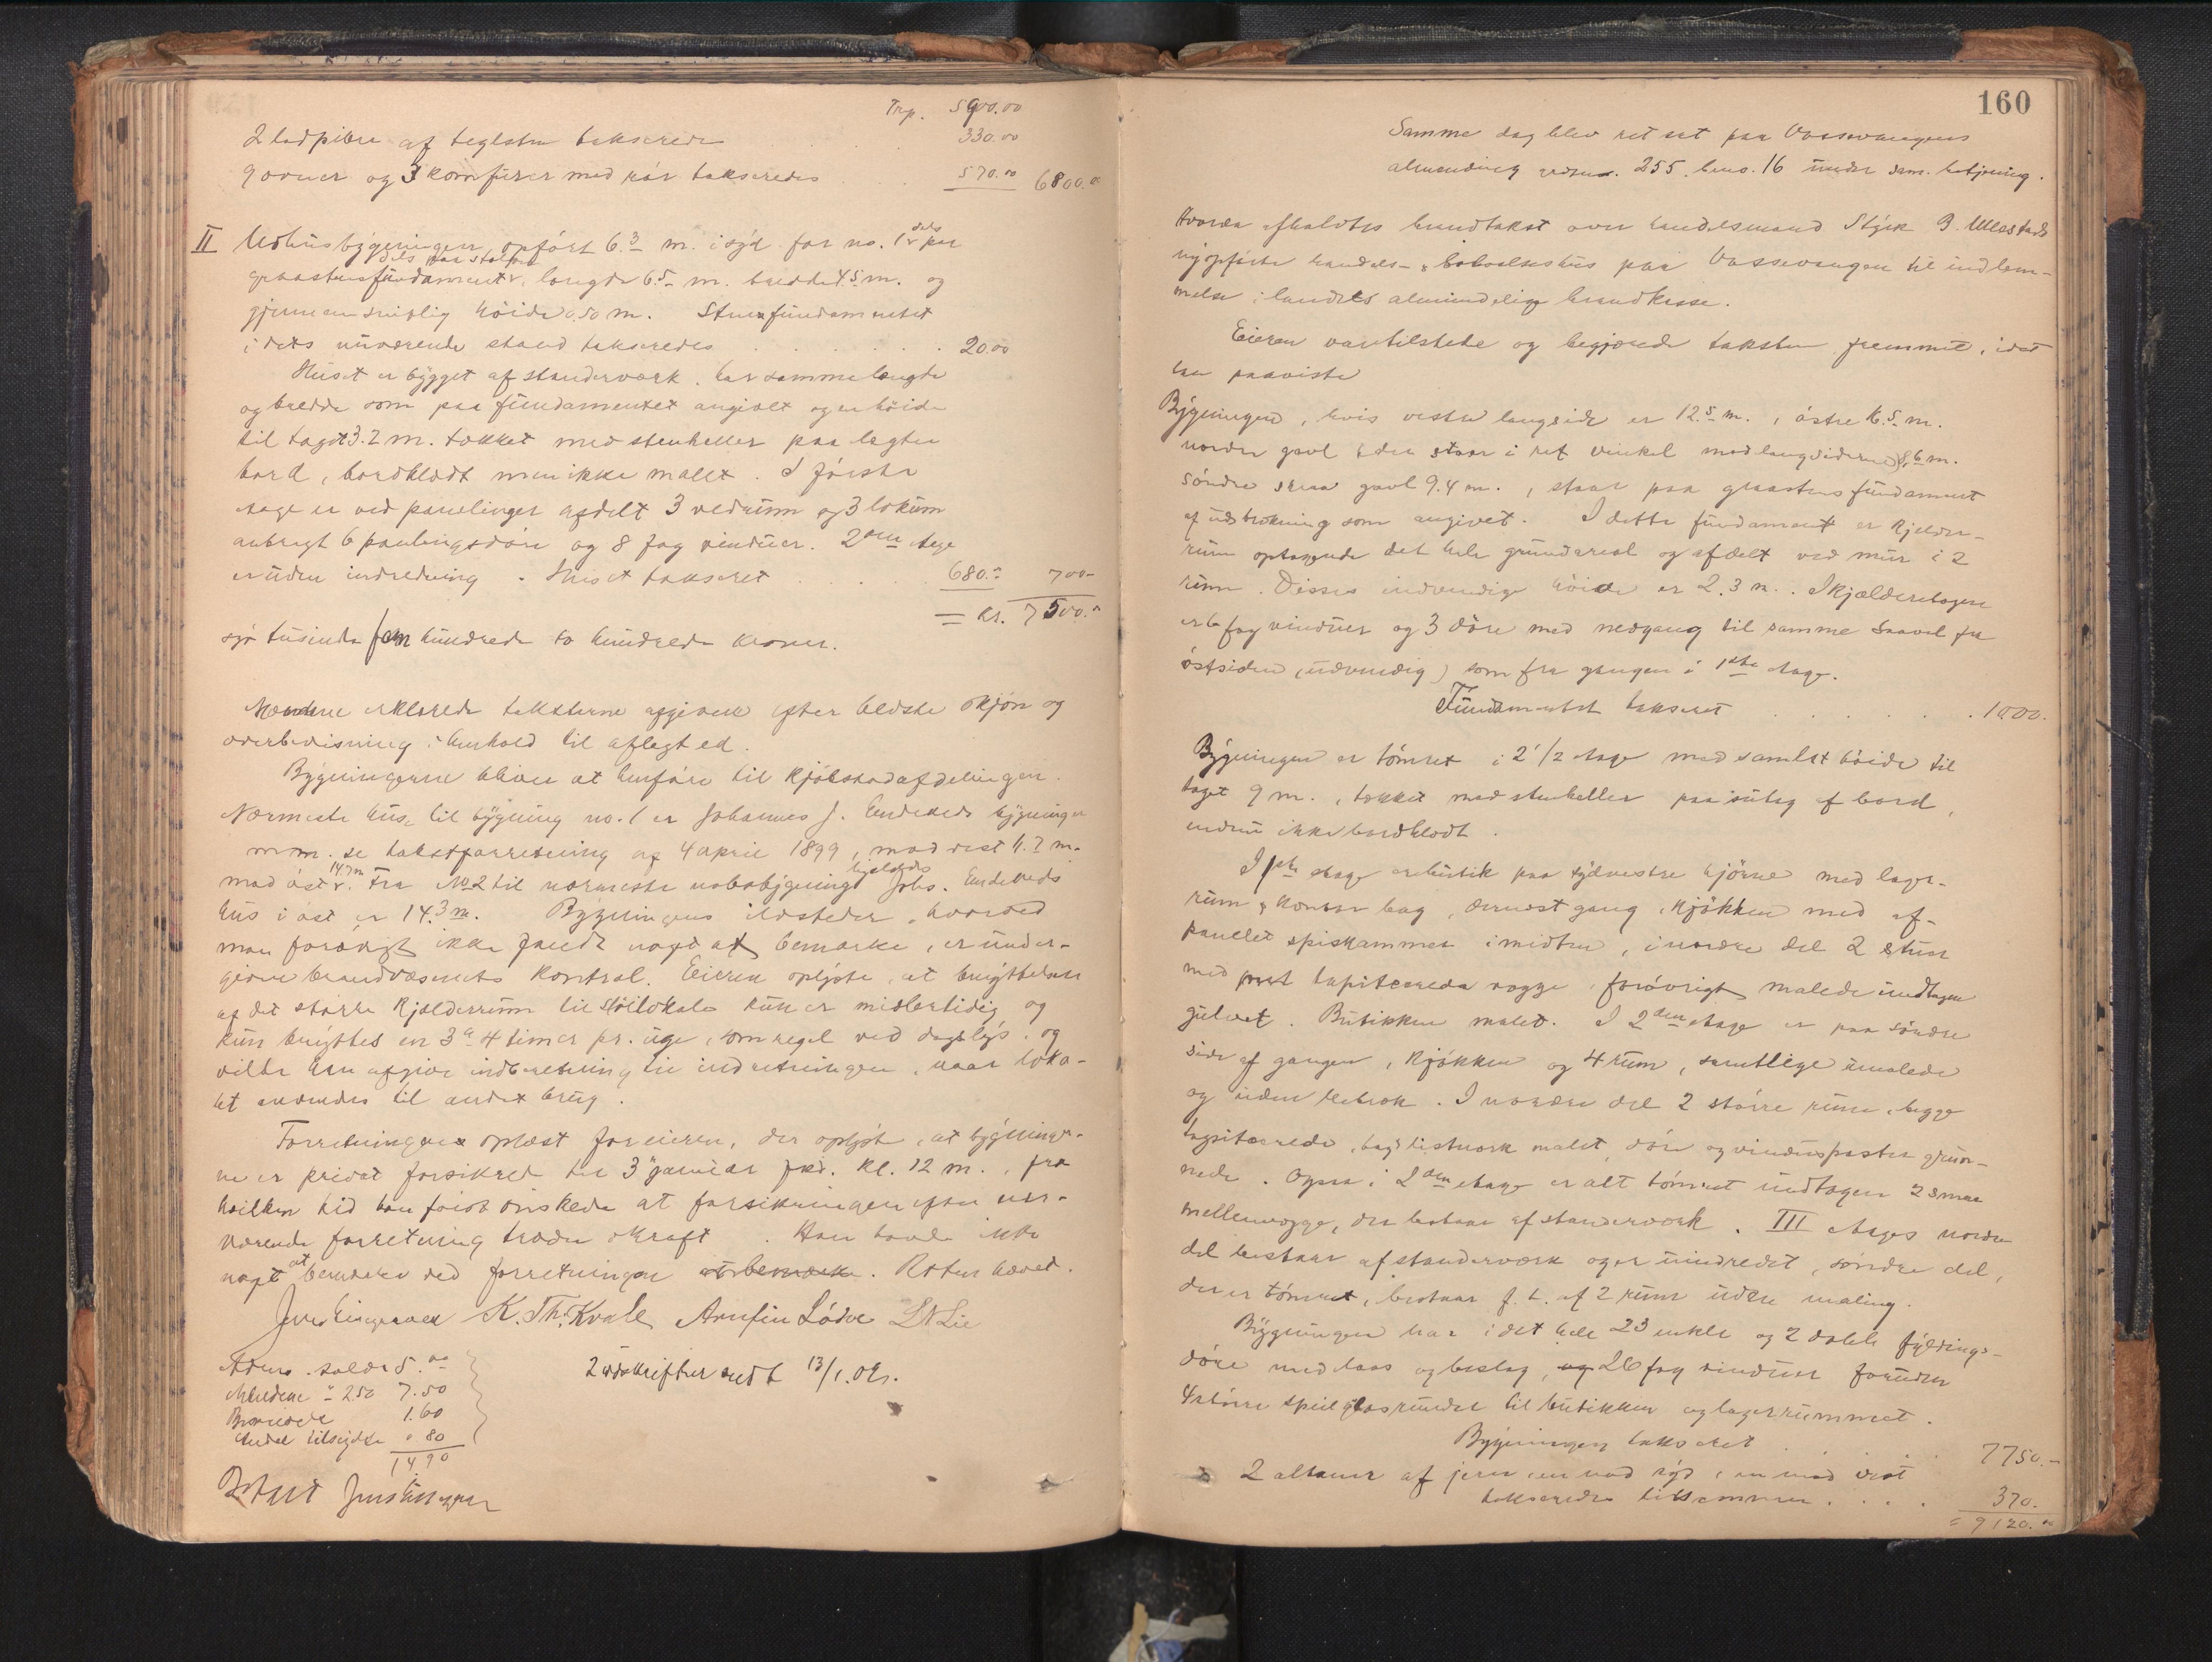 Trp. 5900.00
2 ladpiber af teglsten takserede . . . 330.00
9 ovner og 3 komfurer med rör takseredes . 570.00 6800.00
II Udhusbygningen, opfört 6.3 m. i syd for no. 1 dels paa
graastensfundament dels paa stolper, længde 6.5 m. bredde 4.5 m. og
gjennemsnitlig höide 0.50 m. Stenfundamentet
i dets nuværende stand takseredes . . . . . . . 20.00
Huset er bygget af standerverk, har samme længde
og bredde som paa fundamentet angivet og en höide
til taget 3.2 m. tækket med stenheller paa lægter
bord, bordklædt men ikke malet. I förste
etage er ved panelinger afdelt 3 vedrum og 3 lokum
anbragt 6 panelingsdöre og 8 fag vinduer. 2den etage
er uden indredning. Huset takseret . . . 680.00 700-
= kr. 7500.00
syv tusinde fem hundrede to hundrede kroner.
Mændene erklærede taksterne afgivne efter bedste skjön og
overbevisning i henhold til aflagt ed.
Bygningerne bliver at henföre til kjöbstadafdelingen.
Nærmeste hus til bygning no. 1 er Johannes J. Endeveds bygninger
m m. se takstforretning af 4 april 1899, mod vest 11.2 m.
mod öst 14.7 m. Fra No 2 til nærmeste nabobygning Johs. Endeveds
hus i öst er 14.3 m. Bygningens ildsteder, hvorved
man forövrigt ikke fandt noget at bemærke, er under-
given brandvæsenets kontrol. Eieren oplyste, at benyttelsen
af det större kjælderrum til slöilokale kun er midlertidig og
kun benyttes en 3 a 4 timer pr. uge, som regel ved dagslys. og
vilde han afgive indberetning til indretningen, naar loka-
let anvendes til andet brug.
Forretningen oplæst for eieren, der oplyste, at bygninger-
ne er privat forsikret til 3 januar fkd. kl. 12 m., fra
hvilken tid han först önskede at forsikringen efter nær-
værende forretning træder i kraft. Han havde intet
noget at bemærke ved forretningen at bemærke. Retten hævet.
K. Th. Kvale Arnfin Lödve L N Lie
2 udskrifter sendt 13/1.02.
7.50
1.60
" 80
14.90
160
Samme dag blev ret sat paa Vossevangens
almending grdsno. 255. brno. 16 under sam. betjening.
Hvorda afholdtes brandtakst over handelsmand Styrk B. Ullestads
nyopförte handels- & beboelseshus paa Vossevangen til indlem-
melse i landets almindelige brandkasse.
Eieren var tilstede og begjærede taksten fremmet, idet
han paaviste
Bygningen, hvis vestre langside er 12.5 m., östre 16.5 m.
nordre gavl (der staar i ret vinkel mod langsiderne) 8.6 m.
söndre skraa gavl 9.4 m., staar paa graastens fundament
af udstrækning som angivet. I dette fundament er kjelder-
rum optagende det hele grundareal og afdelt ved mur i 2
rum. Disses indvendige höide er 2.3 m. I kjælderetagen
er 6 fag vinduer og 3 döre med nedgang til samme saavel fra
östsiden (udvendig) som fra gangen i 1ste etage.
Fundamentet takseret . . . . . . . 1000.
Bygningen er tömret i 2 1/2 etage med samlet höide til
taget 9 m., tækket med stenheller paa sutag af bord,
endnu ikke bordklædt.
I 1ste etage er butik paa sydvestre hjörne med lager-
rum & kontor bag, dernæst gang, kjökken med af-
panelet spiskammer i midten, i nordre del 2 stuer
med tapiterede vægge, forövrigt malede undtagen
gulvet. Butikken malet. I 2den etage er paa söndre
side af gangen, kjökken og 4 rum, samtlige umalede
og uden betræk. I nordre del 2 större rum, begge
tapiterede, tag, listverk malet, döre og vinduesposter grun-
nede. Ogsaa i 2den etage er alt tömret undtagen 2 smaa
mellemvægge, der bestaar af standerverk. III etages nordre
del bestaar af standerverk og er uindredet, söndre del,
der er tömret, bestaar f. t. af 2 rum uden maling.
Bygningen har i det hele 23 enkle og 2 doble fyldings-
döre med laas og beslag, og 26 fag vinduer foruden
4 större speilglasruder til butikken og lagerrummet.
Bygningen takseret . . . . 7750.-
2 altaner af jern, en mod syd, en mod vest
takseredes tilsammen . . . . 370.
= 9120.00